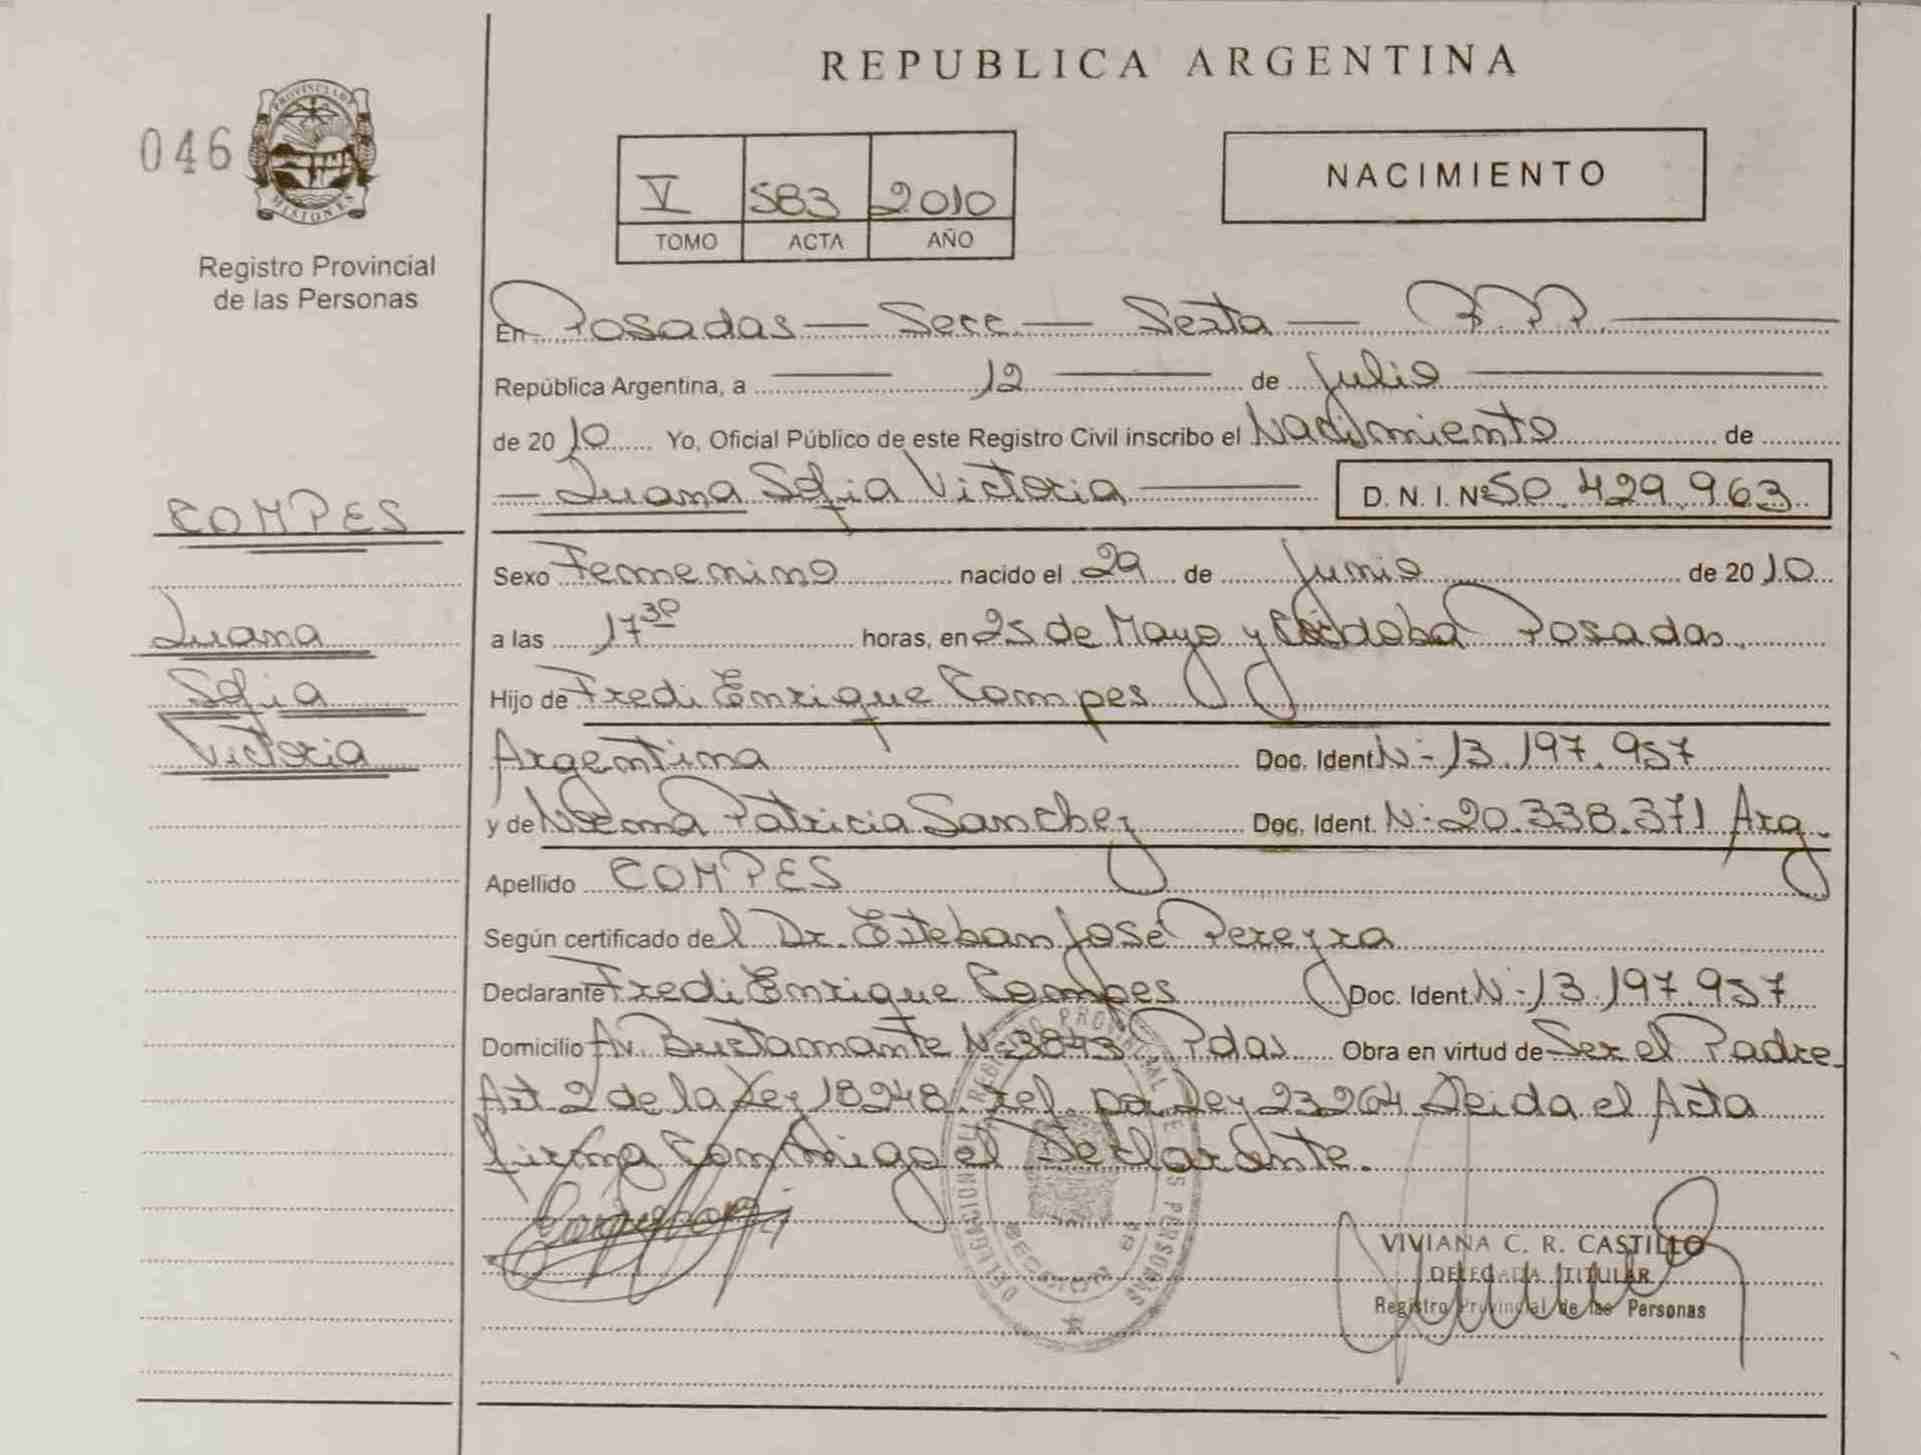 REPUBLICA ARGENTINA
046
PROVINCIA DE
MISIONES
Registro Provincial
de las Personas
NACIMIENTO
V 583 2010
TOMO ACTA AÑO
En Posadas — Secc — Sexta —
República Argentina, a 12 de Julio
de 2010 Yo, Oficial Público de este Registro Civil inscribo el Nacimiento de
— Luana Sofia Victoria — D. N. I. Nº 50.429.963
COMPES
Luana
Sofia
Victoria
Sexo Femenino nacido el 29 de Junio de 2010
a las 17 30 horas, en 25 de Mayo y Córdoba Posadas
Hijo de Fredi Enrique Compes
Argentina Doc. Ident. Nº 13.197.957
y de Patricia Sanchez Doc. Ident. Nº 20.338.371 Arg.
Apellido COMPES
Según certificado del Dr. Esteban José Pereyra
Declarante Fredi Enrique Compes Doc. Ident. Nº 13.197.957
Domicilio Av. Bustamante Nº 3843 Pdas Obra en virtud de Ser el Padre
Art 2 de la Ley 18248 ref. por Ley 23264 Leida el Acta
firma Conmigo el Declarante.
VIVIANA C. R. CASTILLO
DELEGADA TITULAR
Registro Provincial de las Personas